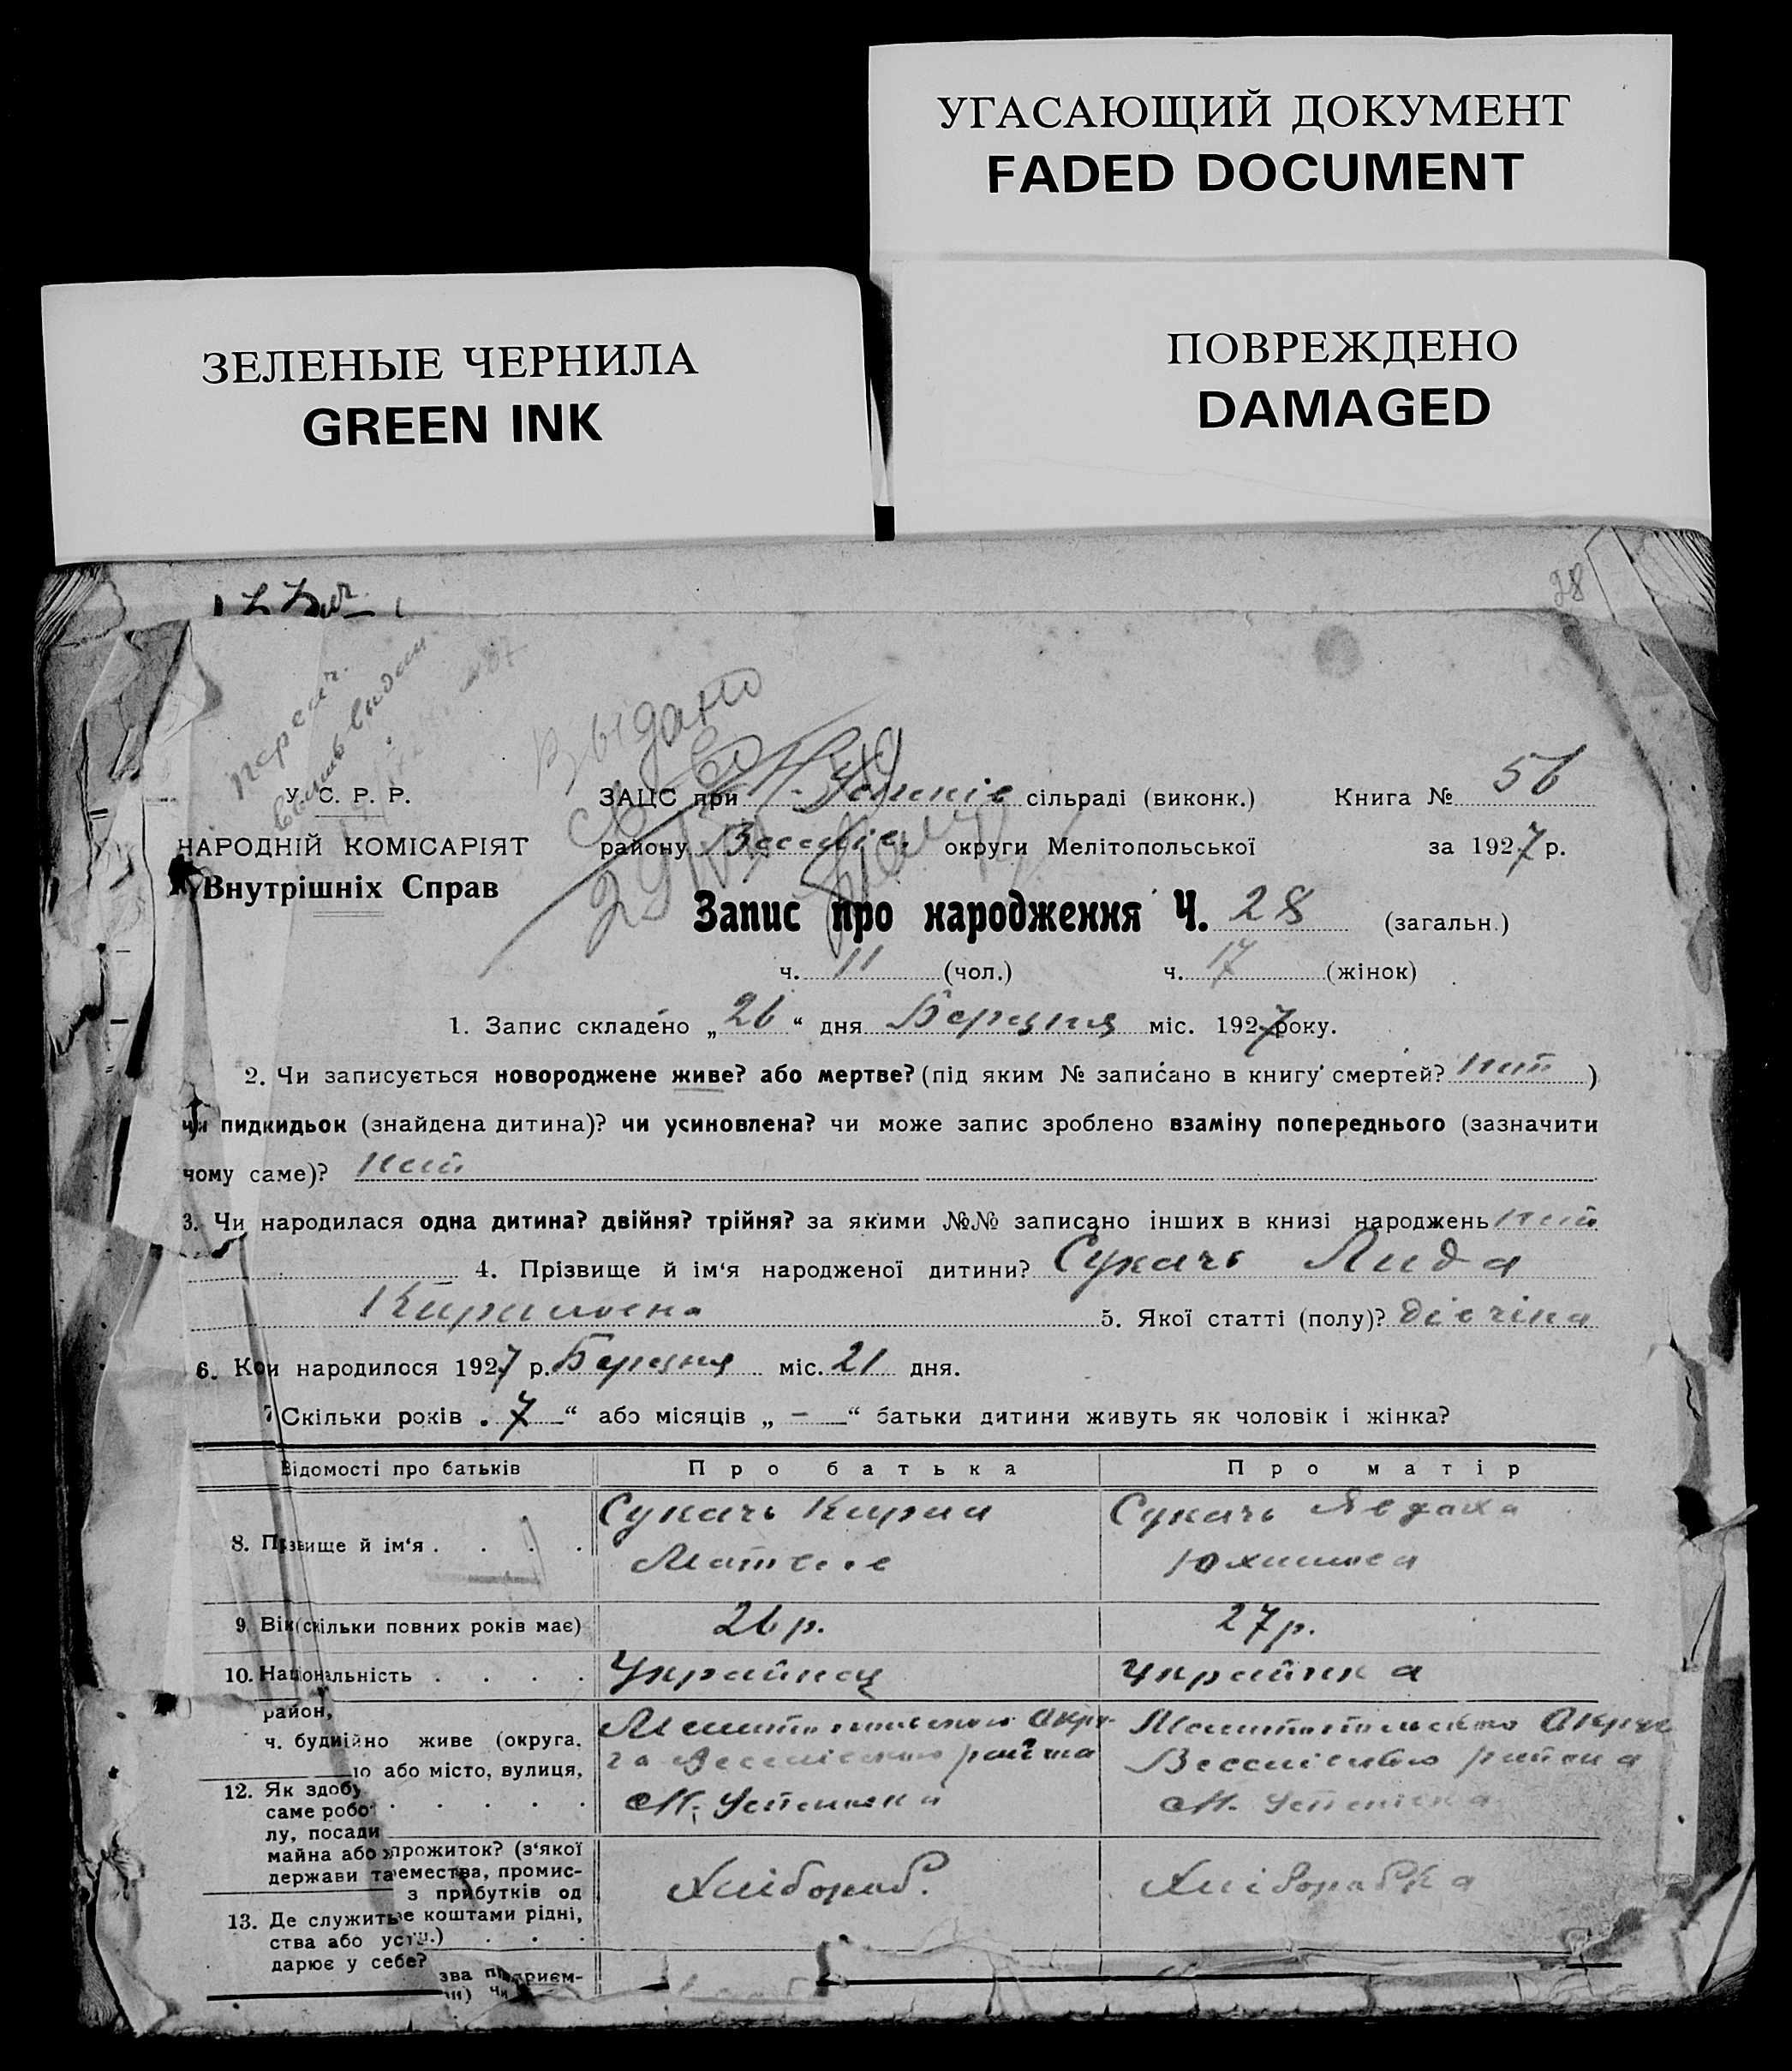 УГАСАЮЩИЙ ДОКУМЕНТ
FADED DOCUMENT
ЗЕЛЕНЫЕ ЧЕРНИЛА
GREEN INK
ПОВРЕЖДЕНО
DAMAGED
28
Выдано
У. С. Р. Р.
ЗАЦС при сільраді (виконк.) Книга № 56
НАРОДНІЙ КОМІСАРІЯТ
району Веселів. округи Мелітопольської за 1927 р.
Внутрішніх Справ
Запис про народження Ч. 28 (загальн.)
ч. 11 (чол.) ч. 17 (жінок)
1. Запис складено „26“ дня Березня міс. 1927 року.
2. Чи записується новороджене живе? або мертве? (під яким № записано в книгу смертей? ній)
чи пидкидьок (знайдена дитина)? чи усиновлена? чи може запис зроблено взаміну попереднього (зазначити
чому саме)? ній
3. Чи народилася одна дитина? двійня? трійня? за якими №№ записано інших в книзі народжень ній
4. Прізвище й ім‘я народженої дитини? Сукачь Лида
Кириловна 5. Якої статті (полу)? дівчіна
6. Кои народилося 1927 р. Березня міс. 21 дня.
7 Скільки років „7“ або місяців „ – “ батьки дитини живуть як чоловік і жінка?
Відомості про батьків Про батька Про матір
8. Прізвище й ім‘я . . . . Сукачь Кирил Сукачь Явдаха
Матвеев Юхимова
9. Вік (скільки повних років має) 26 р. 27 р.
10. Національність . . . . Украйнец украйнка
район,
ч. будийно живе (округа. Мелитопольского Окру- Мелитопольского Округа
га Веселівського района Веселівського района
ло або місто, вулиця,
12. Як здобу
саме робо М. Успенівка М. Успенівка
лу, посади
майна або прожиток? (з‘якої
держави та емества, промис- Хлібороб. Хліборобка
з прибутків од
13. Де служить е коштами рідні,
ства або уст .)
дарює у себе?
зва підприєм-
ni) Чи